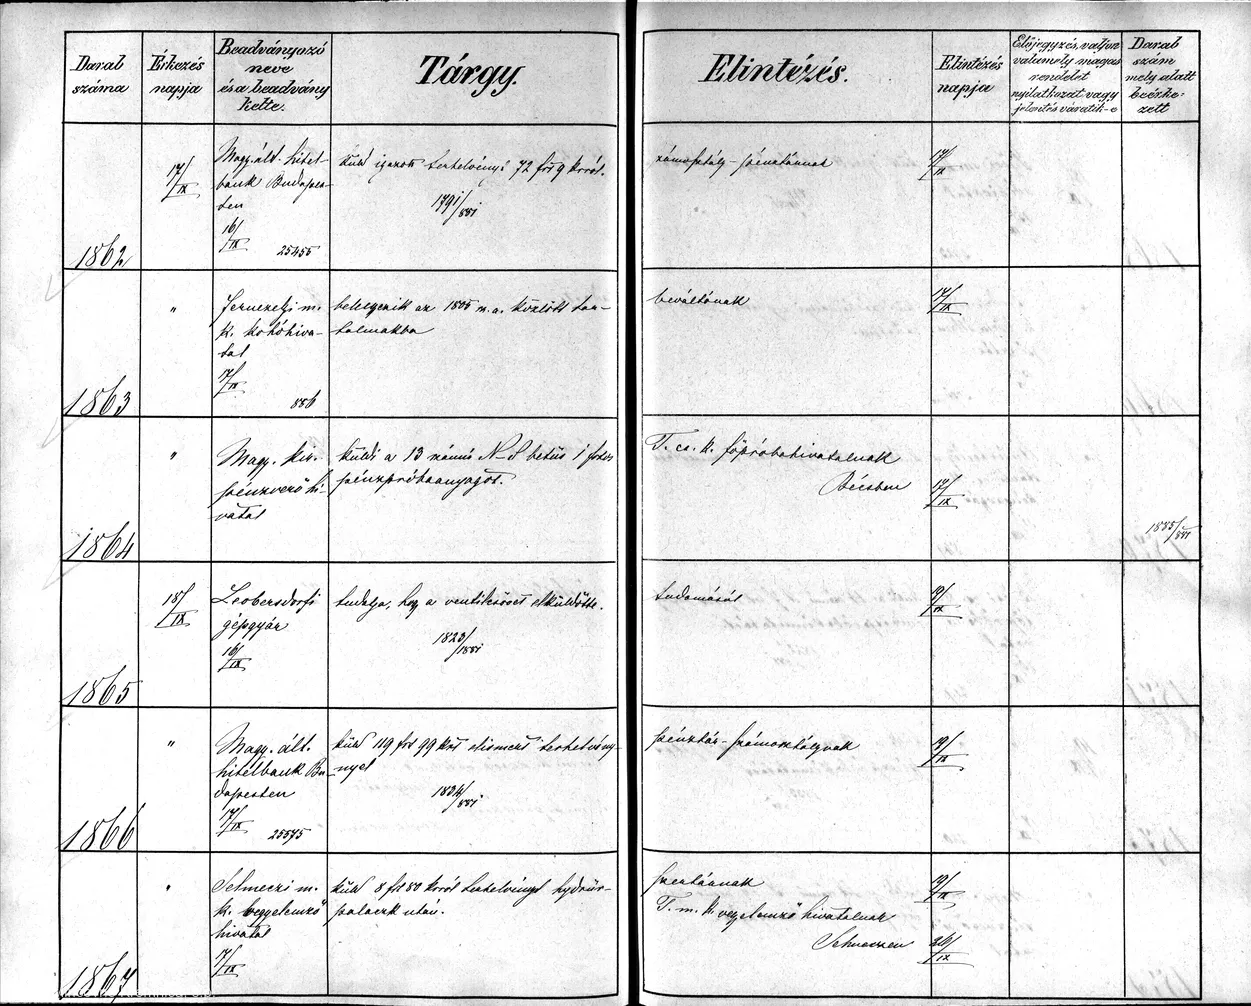 Darab száma
Érkezés napja
Beadványozó neve és a beadvány kelte.
Tárgy.
Elintézés.
Elintézés napja
Előjegyzés, valjon valamely magas rendelet nyilatkozat vagy jelentés váratik-e
Darab szám mely alatt beérkezett
1862
17/IX
Magy. ált. hitel-
bank Budapes-
ten
16/IX
25455
küld igazolt tertelvényt 72 frt 9 krról.
1791/881
számosztály - pénztárnak
17/IX
1863
"
Fernezelyi m.
k. kohóhiva-
tal
17/IX
886
beleegyezik az 1805 m.a. közlött tar-
talmakba
beváltónak
17/IX
1864
"
Magy. kir.
pénzverő hi-
vatal
küldi a 13 számú N. S betüs 1 frtos
pénzpróbaanyagot.
T. cs. k. főpróbahivatalnak
Bécsben
17/IX
1885/881
1865
18/IX
Leobersdorfi
gépgyár
16/IX
tudatja, hogy a ventilcsövet elküldötte.
1823/1881
tudomásúl
19/IX
1866
"
Magy. ált.
hitelbank Bu-
dapesten
17/IX
25575
küld 119 frt 99 krt elismerő tertelvény-
nyel
1834/881
pénztár - számosztálynak
19/IX
1867
"
Selmeczi m.
k. vegyelemző
hivatal
17/IX
küld 8 frt 80 krról tertelvényt hydrür-
palaczk után.
T. m. k. vegyelemző hivatalnak
Selmeczen
19/IX
26/IX